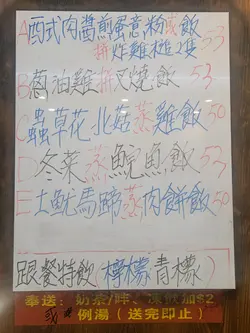 A西式肉醬煎蛋意粉或飯
拼炸雞槌2隻 53
B蔥油雞拼叉燒飯 53
C蟲草花北菇蒸雞飯 50
D冬菜蒸鯇魚飯 52
E土魷馬蹄蒸肉餅飯 50
跟餐特飲(檸檬青檬)
奉送：奶茶/啡、凍飲加$2
或 例湯（送完即止）